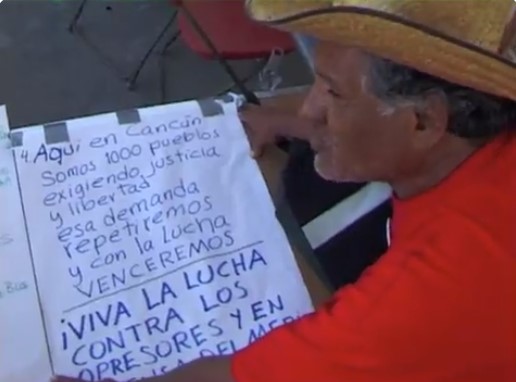 4. Aquí en Cancún
Somos 1000 pueblos
exigiendo justicia
y libertad
esa demanda
repetiremos
y con la lucha
VENCEREMOS
¡VIVA LA LUCHA
CONTRA LOS
OPRESORES Y EN
DEL